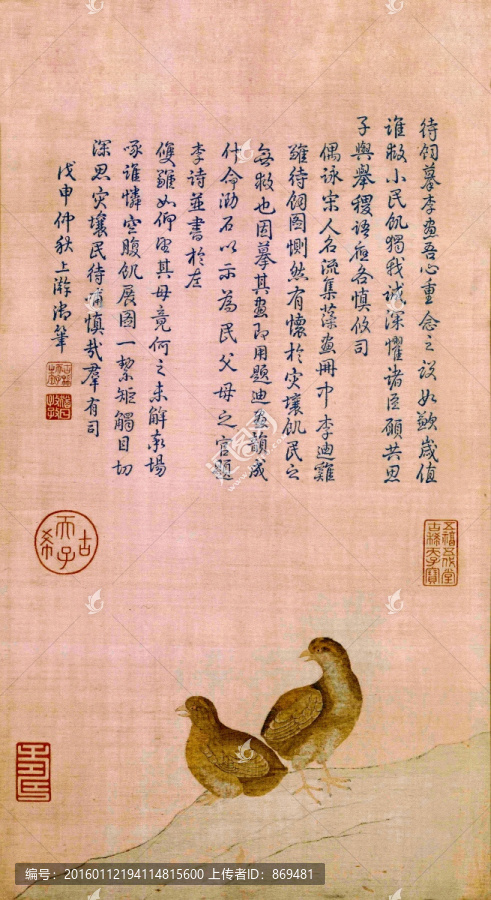 待飼摹李畫吾心重念之設如歉歲值
誰救小民飢獨我誠深懼諸臣願共思
子輿舉稷語應各慎攸司
偶詠宋人名流集藻畫冊中李迪雞
雛待飼圖惻然有懷於災壤飢民之
無救也因摹其畫即用題迪畫韻成
什命泐石以示為民父母之官題
李詩並書於左
雙雛如仰望其母竟何之未解牽場
啄誰憐空腹飢展圖一絜矩觸目切
深思災壤民待哺慎哉羣有司
戊申仲秋上澣御筆
古希天子
五福五代堂
古稀天子寶
编号：20160112194114815600 上传者ID：869481